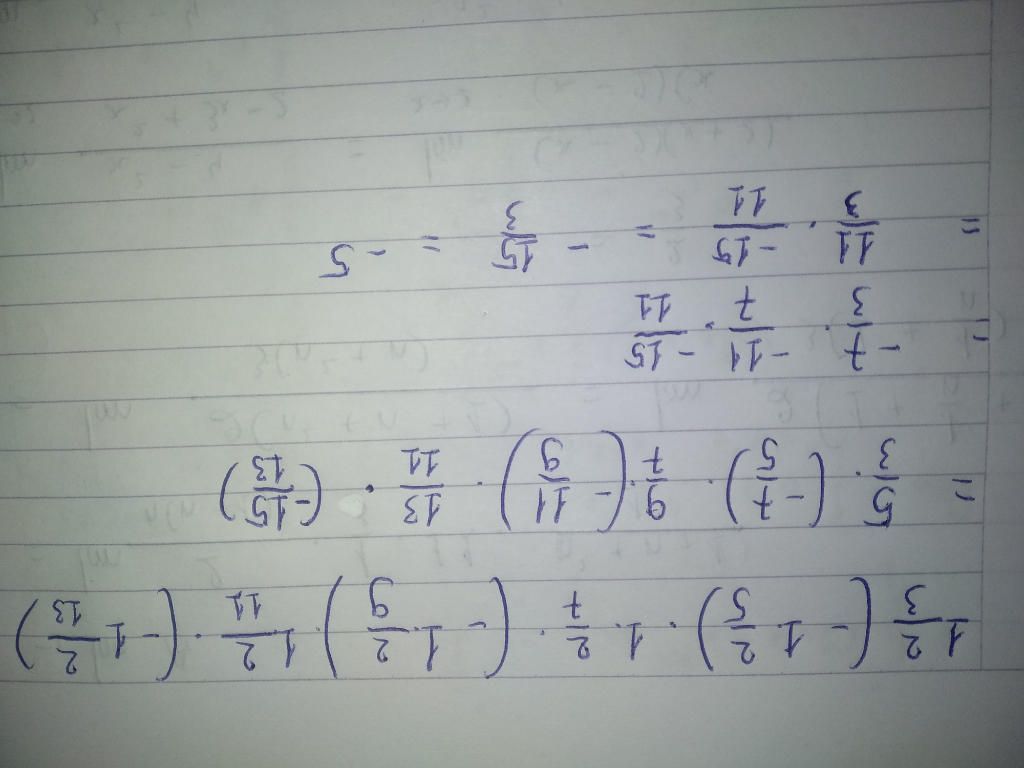 1 2/3 (-1 2/5) · 1 2/7 · (-1 2/9) · 1 2/11 · (-1 2/13)
= 5/3 · (-7/5) · 9/7 · (-11/9) · 13/11 · (-15/13)
= -7/3 · -11/7 · -15/11
= 11/3 · -15/11 = -15/3 = -5